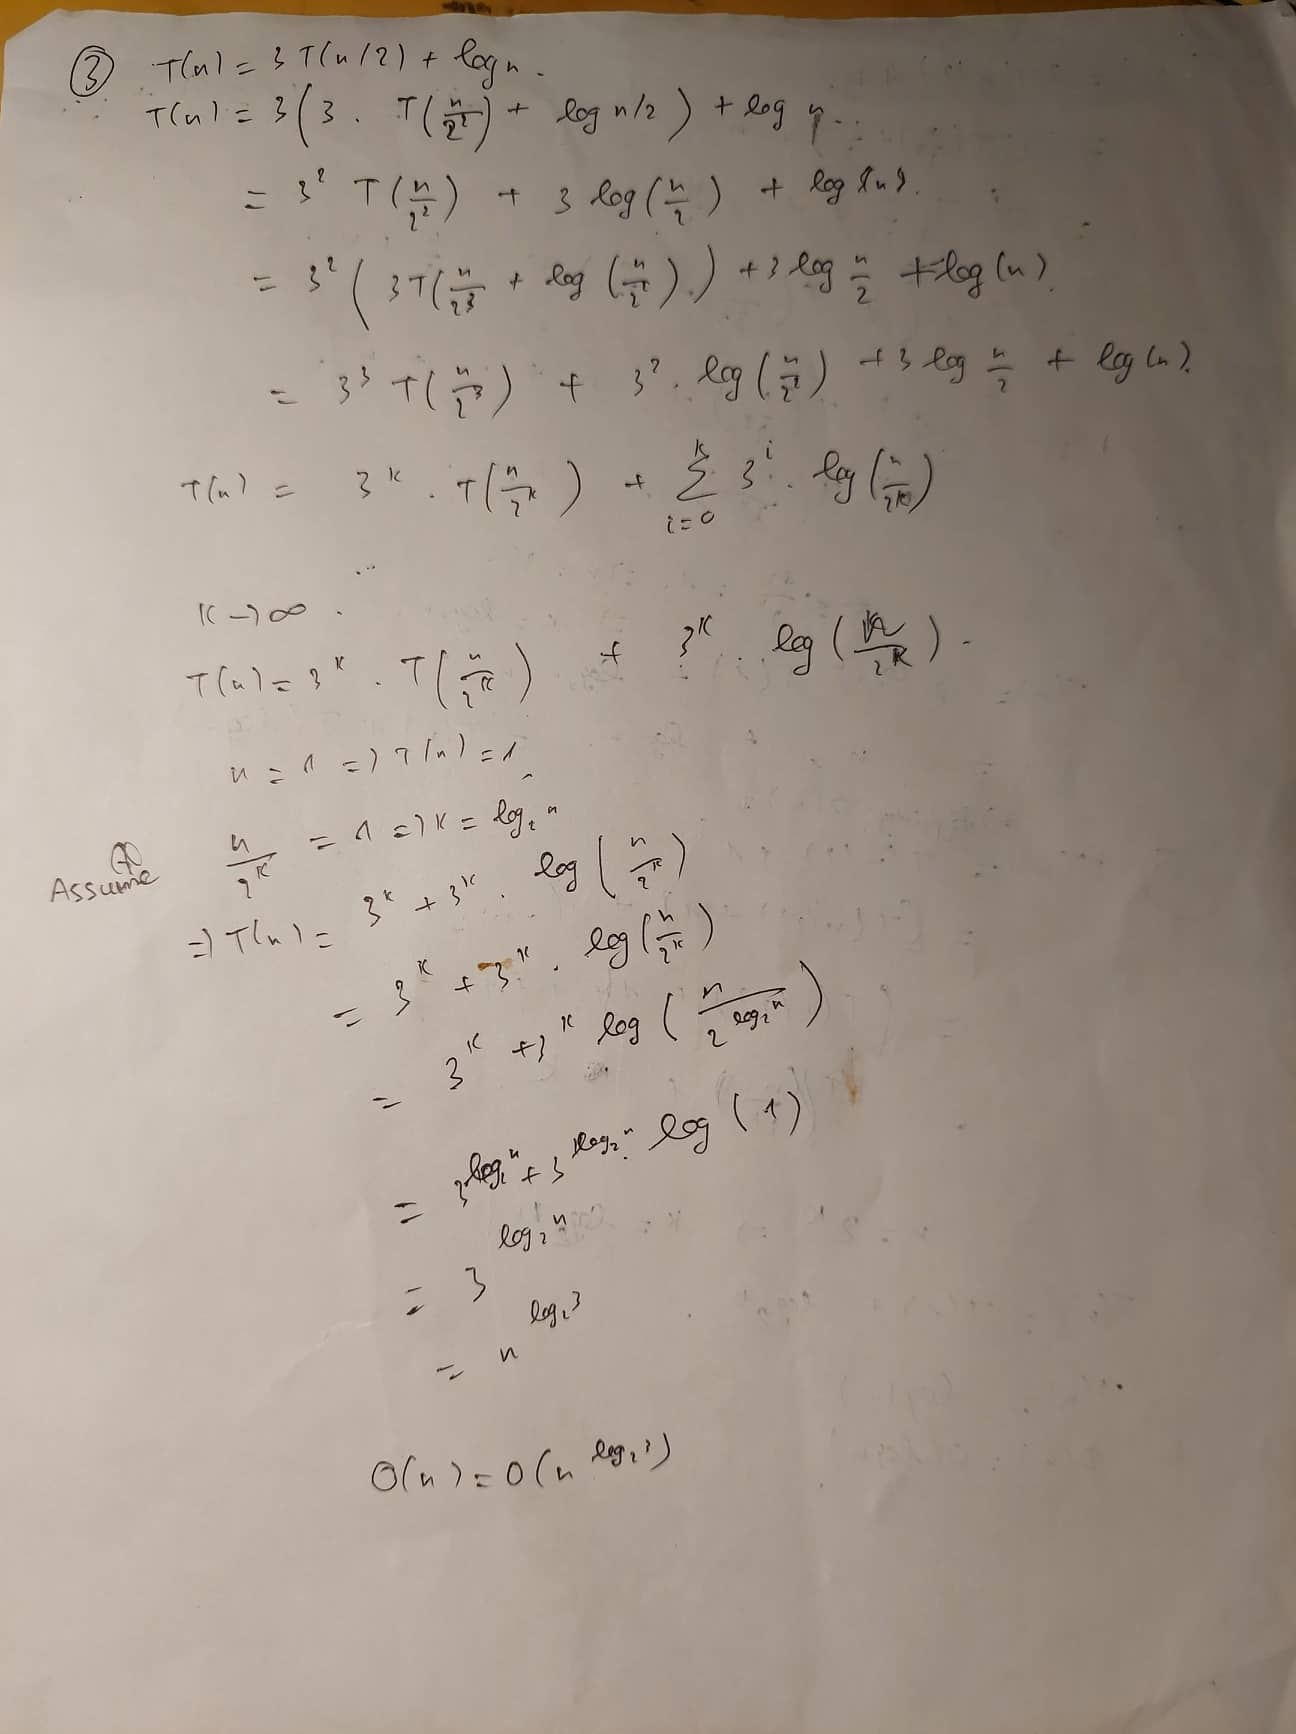 ③ T(n) = 3 T(n/2) + log n.
T(n) = 3(3. T(n/2²) + log n/2) + log n.
= 3² T(n/2²) + 3 log(n/2) + log (n).
= 3² (3T(n/2³ + log (n/2²).) + 3 log n/2 + log(n).
= 3³ T(n/2³) + 3². log(n/2²) + 3 log n/2 + log(n).
T(n) = 3^K . T(n/2^K) + Σ_{i=0}^{K} 3^i . log(n/2^K)
...
K → ∞ .
T(n) = 3^K . T(n/2^K) + 3^K . log(n/2^K) .
n = 1 => T(n) = 1
Assume n/2^K = 1 => K = log₂ n
=> T(n) = 3^K + 3^K . log(n/2^K)
= 3^K + 3^K . log(n/2^K)
= 3^K + 3^K log(n/2^{log₂ n})
= 3^{log₂ n} + 3^{log₂ n} . log(1)
= 3^{log₂ n}
= n^{log₂ 3}
O(n) = O(n^{log₂ 3})